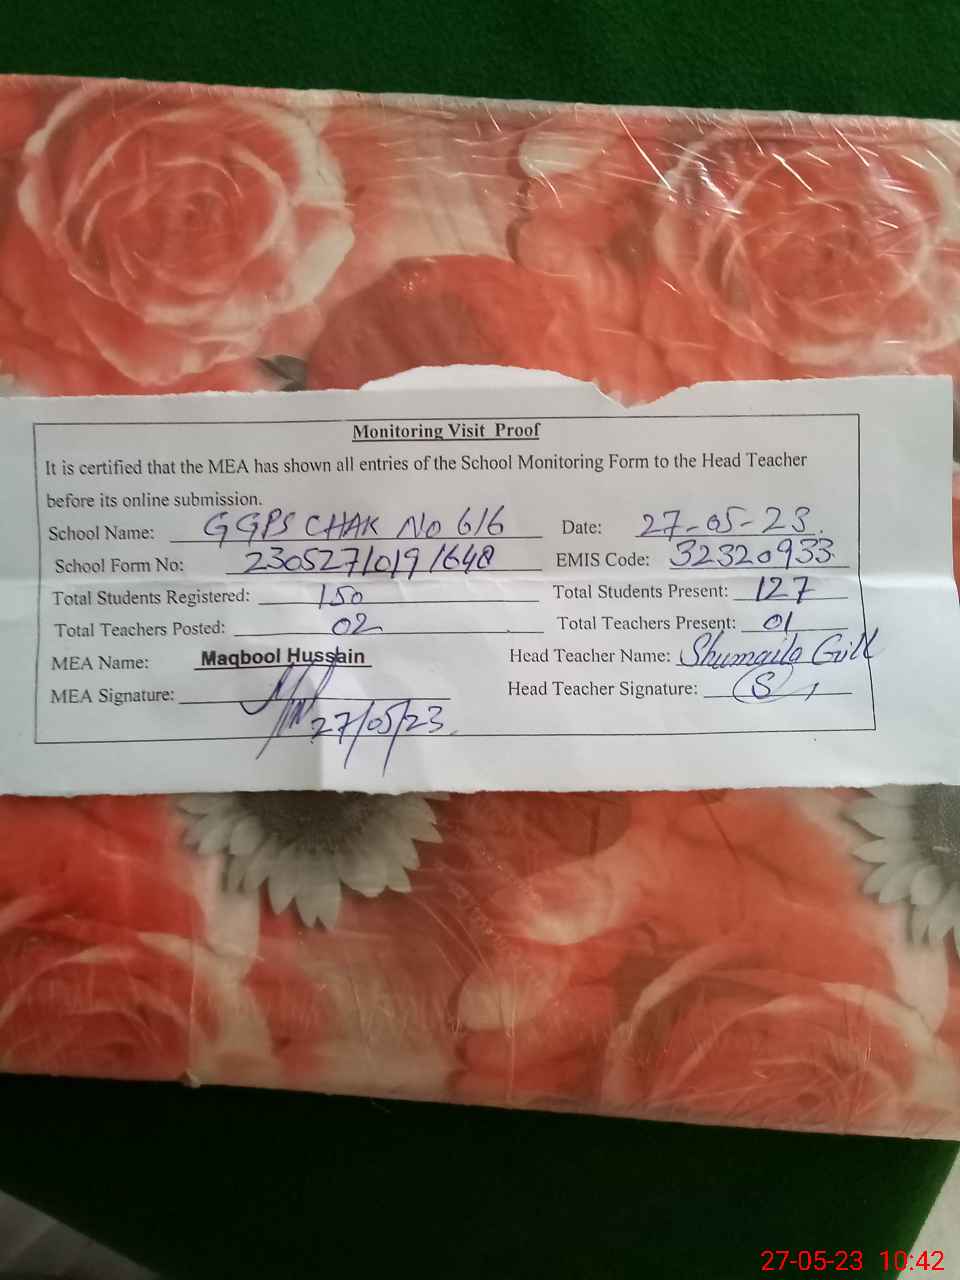 Monitoring Visit Proof
It is certified that the MEA has shown all entries of the School Monitoring Form to the Head Teacher
before its online submission.
School Name: GGPS CHAK NO 616 Date: 27-05-23
School Form No: 230527/019/648 EMIS Code: 32320933
Total Students Registered: 150 Total Students Present: 127
Total Teachers Posted: 02 Total Teachers Present: 01
MEA Name: Maqbool Hussain Head Teacher Name: Shumaila Gill
MEA Signature: Head Teacher Signature: S
27/05/23
27-05-23 10:42